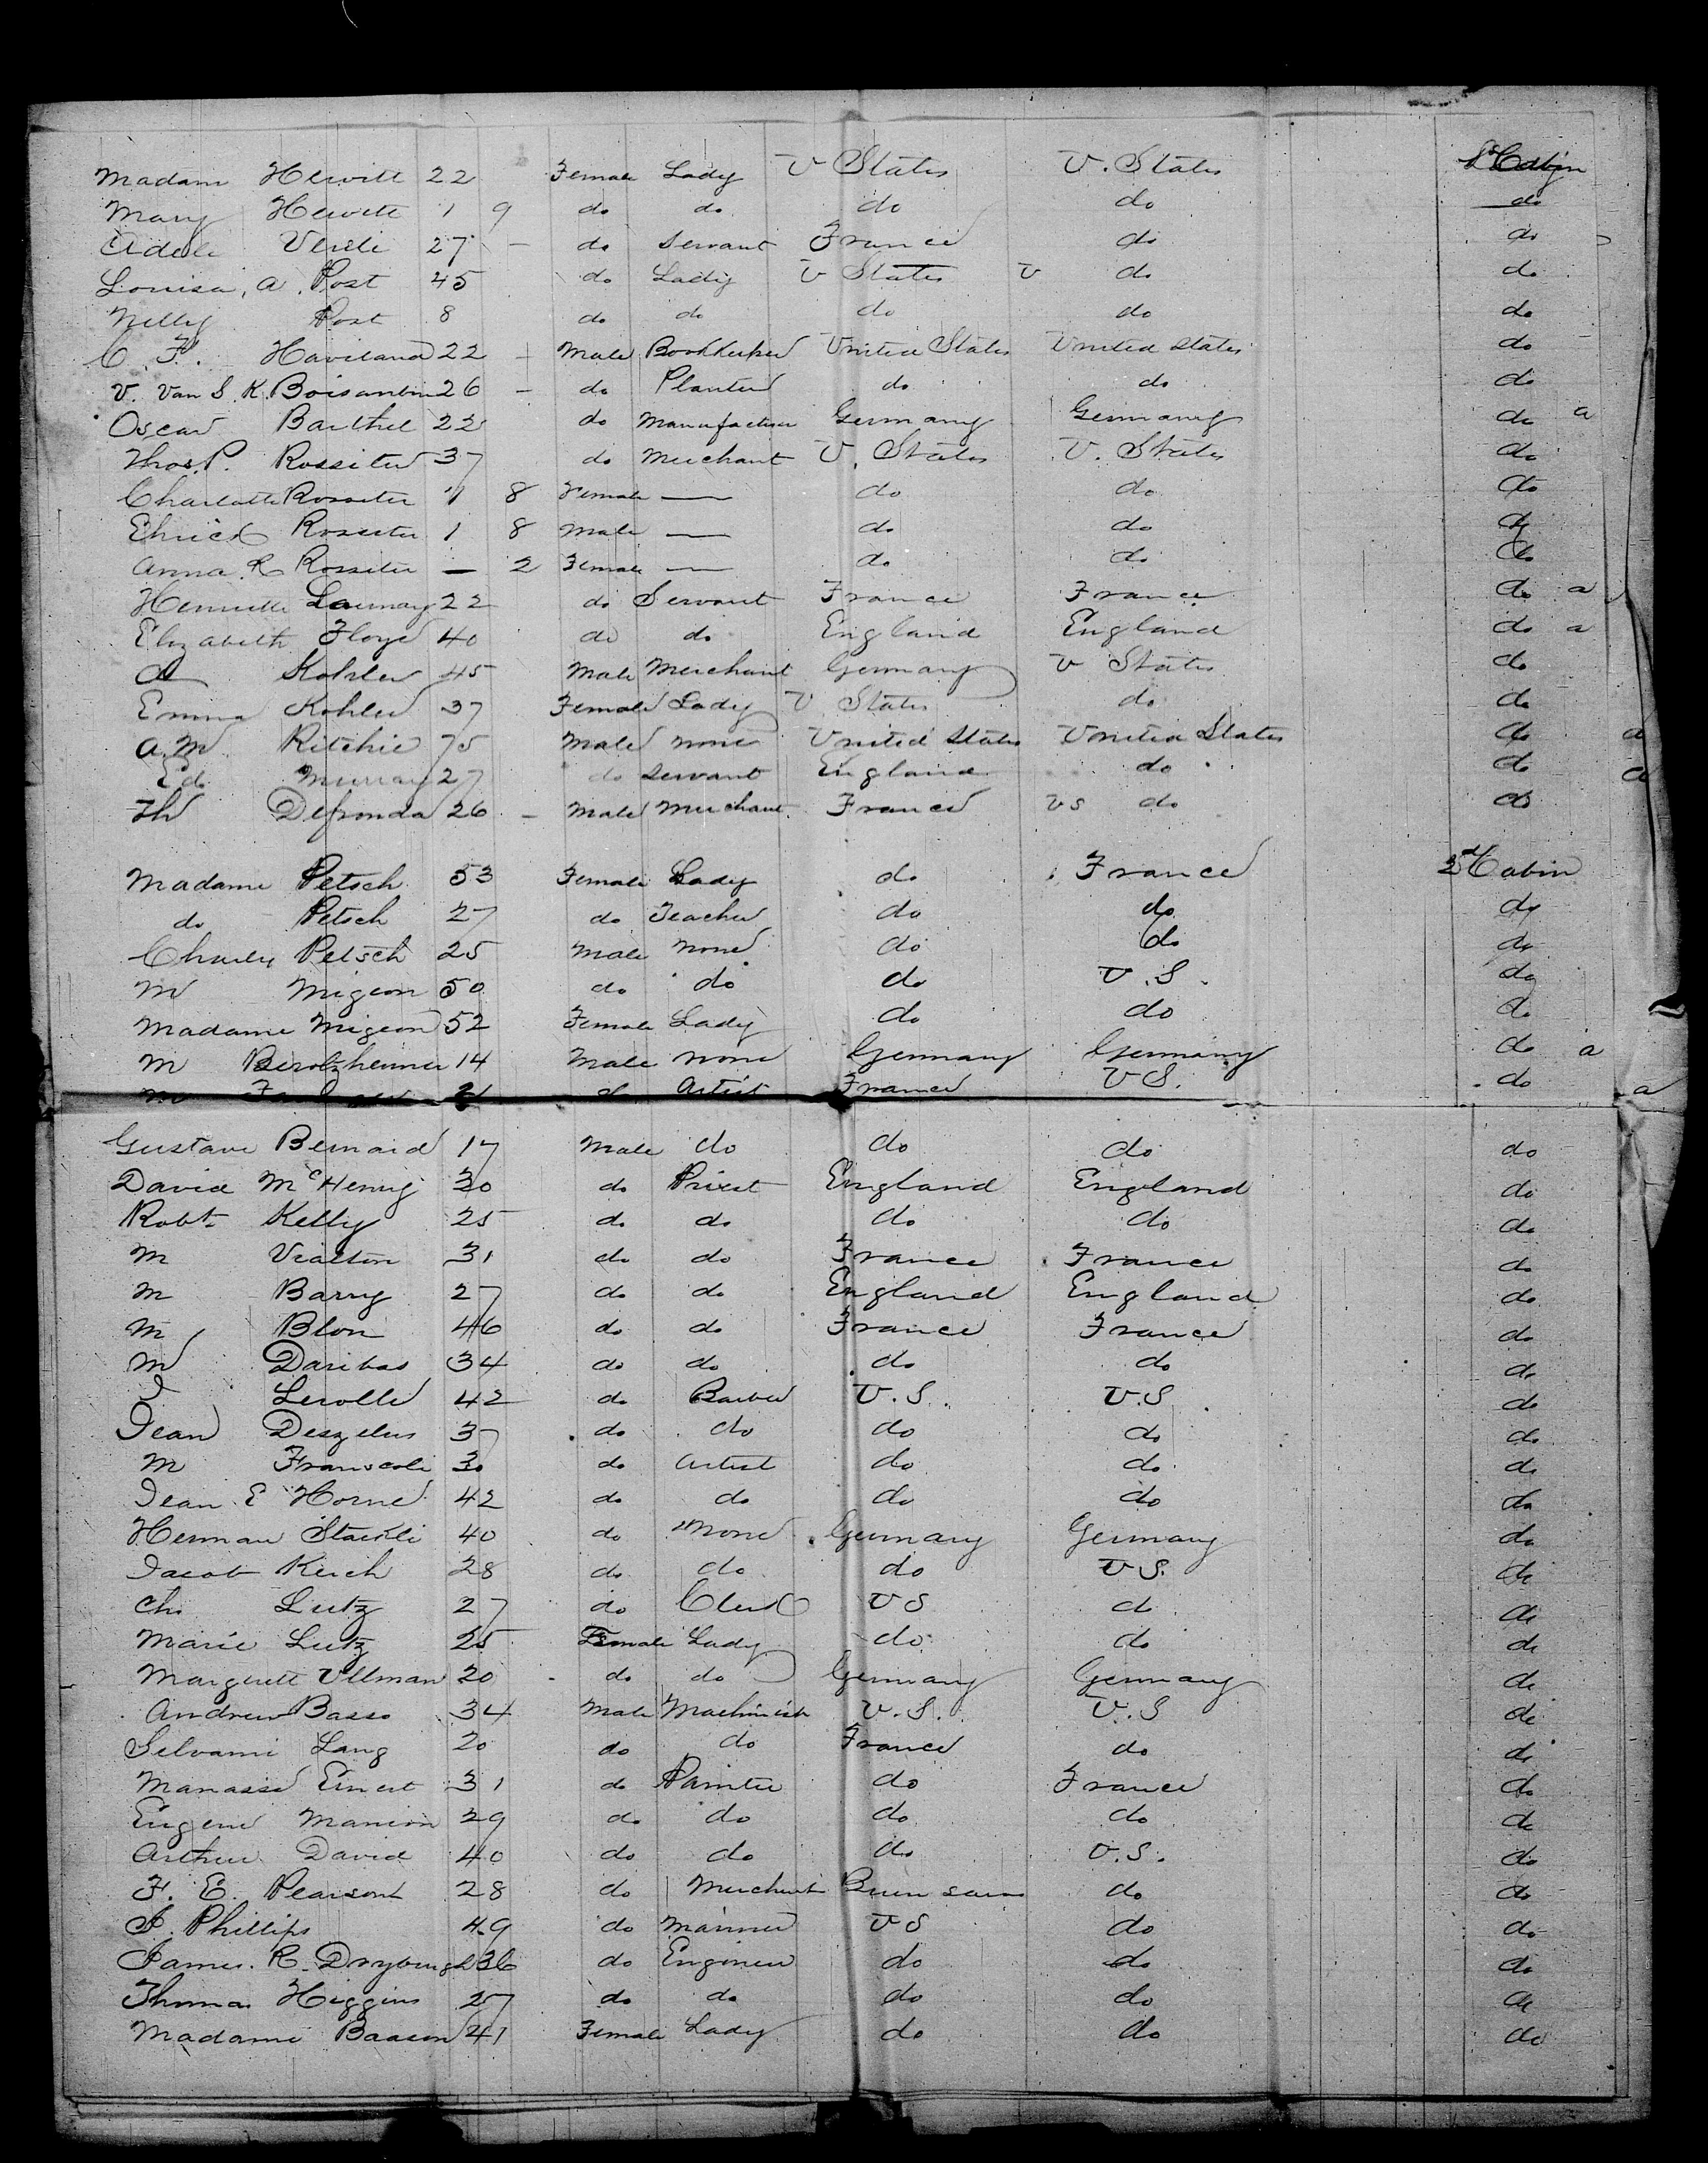 Madam Hewitt 22 Female Lady U States U. States 1st Cabin
Mary Hewitt 1 9 do do do do do
Adele 27 - do Servant France do do
Louisa, A. Post 45 do Lady U States U do do
Nelly Post 8 do do do do do
C. F. Haviland 22 - Male Bookkeeper United States United States do
V. Van S. K. 26 - do Planter do do do
Oscar Barthel 22 do Manufacturer Germany Germany do a
Thos. P. Rossiter 37 do Merchant U. States U. States do
Charlotte Rossiter 1 8 Female — do do do
Ehrick Rossiter 1 8 Male — do do do
Anna. R Rossiter — 2 Female — do do do
Henriette Launay 22 do Servant France France do a
Elizabeth Floyd 40 do do England England do a
Kohler 45 Male Merchant Germany U States do
Emma Kohler 37 Female Lady U States do do
A. M Ritchie 75 Male none United States United States do a
Ed. Murray 27 do Servant England do do a
Th Defronda 26 - Male Merchant France US do do
Madame Petsch 53 Female Lady do France 2d Cabin
do Petsch 27 do Teacher do do do
Charles Petsch 25 Male none do do do
M Migeon 50 do do do U.S. do
Madame Migeon 52 Female Lady do do do
M Berolzheimer 14 Male none Germany Germany do a
M do Artist France U S. do a
Gustave Bernard 17 Male do do do do
David McHenry 30 do Priest England England do
Robt. Kelly 25 do do do do do
M Vialton 31 do do France France do
M Barry 27 do do England England do
M Blon 46 do do France France do
M Daribas 34 do do do do do
J Lerolle 42 do Barber U.S. U.S do
Jean Deszelus 37 do do do do do
M Franscoli 30 do Artist do do do
Jean E Horne 42 do do do do do
Herman 40 do None Germany Germany do
Jacob Kerch 28 do do do U S. do
Ch. Lutz 27 do Clerk U S do do
Marie Lutz 25 Female Lady do do do
Margrett Ullman 20 do do Germany Germany do
Andrew Basso 34 Male Machinist U.S. U.S do
Selvami Lang 20 do do France do do
Manasse Ernest 31 do Painter do France do
Eugene Manion 29 do do do do do
Arthur David 40 do do do U.S. do
F. E. Pearson 28 do Merchant do do
J. Phillips 49 do Mariner U S do do
James. R. Dryburgh 36 do Engineer do do do
Thomas Higgins 27 do do do do do
Madame Baason 41 Female Lady do do do